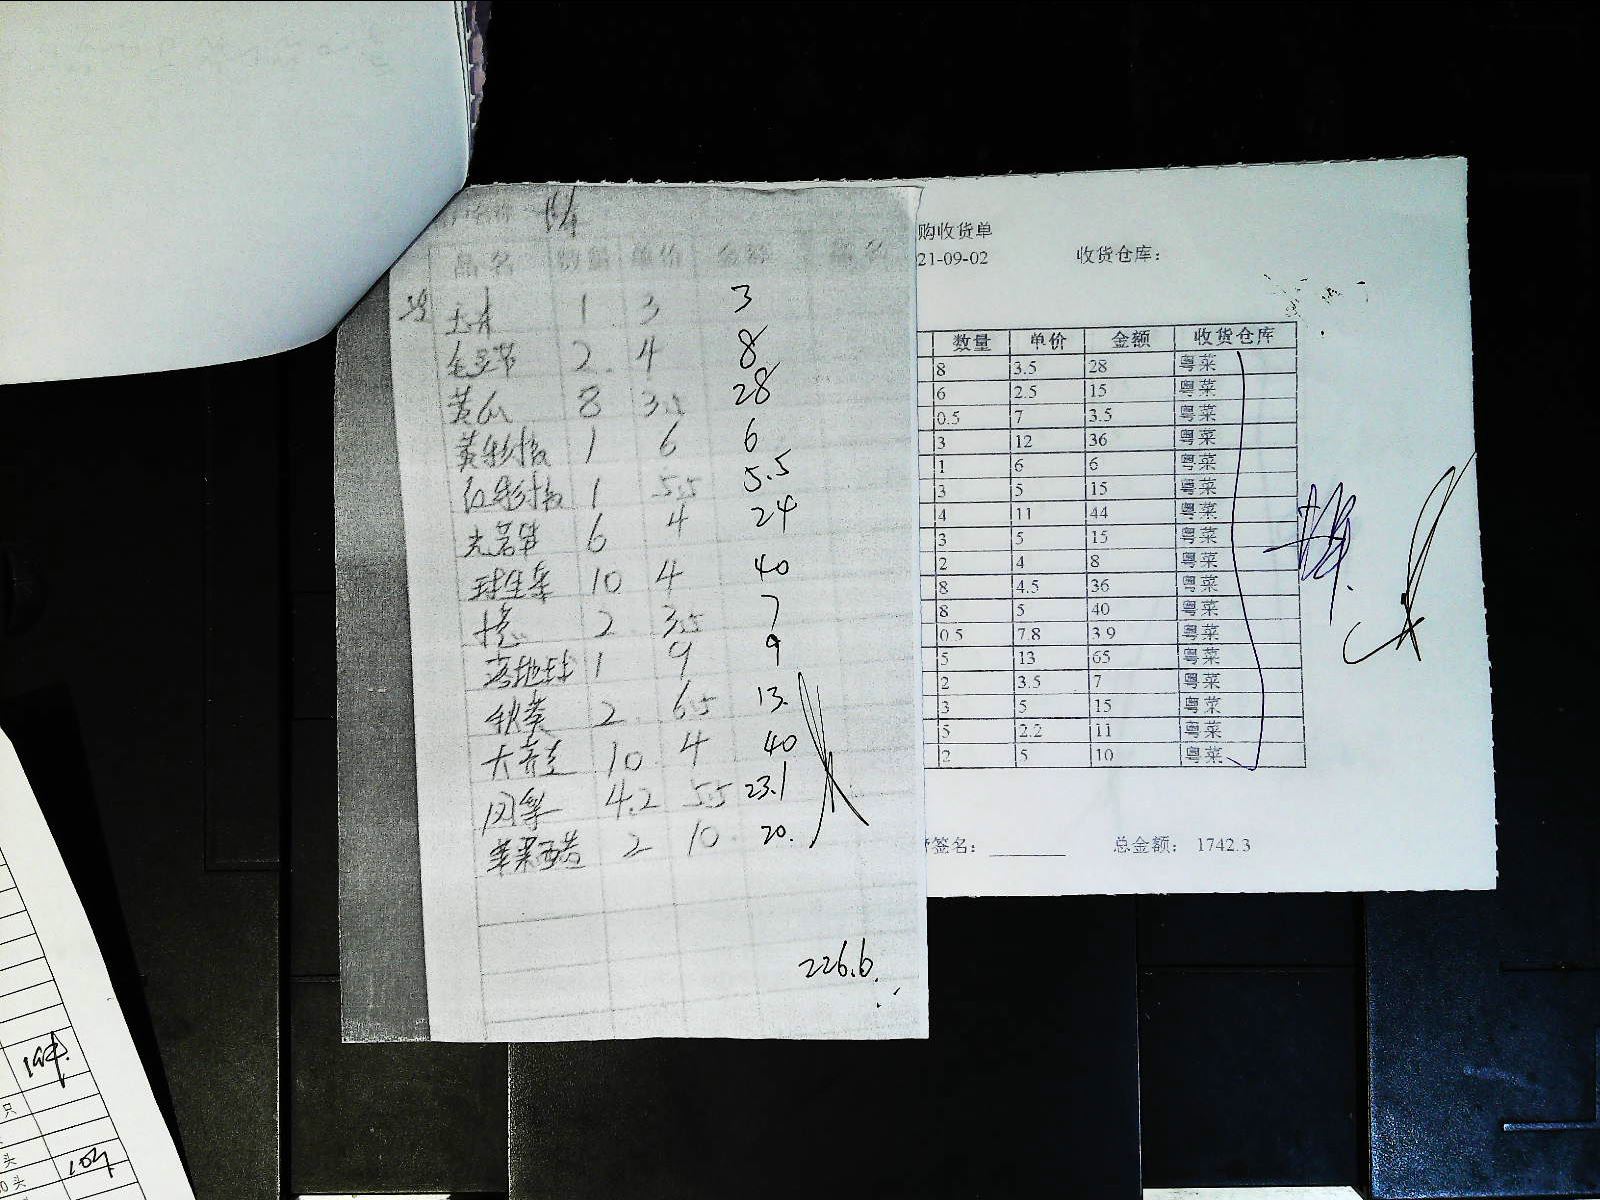 品名 数量 单价 金额
土介 1 3 3
2. 4 8
黄瓜 8 3.5 28
黄彩椒 1 6 6
红彩椒 1 5.5 5.5
6 4 24
球生菜 10 4 40
2 3.5 7
1 9 9
秋葵 2 6.5 13.
10 4 40
4.2 5.5 23.1
苹果醋 2 10. 20.
226.6
购收货单
21-09-02 收货仓库：
数量 单价 金额 收货仓库
8 3.5 28 粤菜
6 2.5 15 粤菜
0.5 7 3.5 粤菜
3 12 36 粤菜
1 6 6 粤菜
3 5 15 粤菜
4 11 44 粤菜
3 5 15 粤菜
2 4 8 粤菜
8 4.5 36 粤菜
8 5 40 粤菜
0.5 7.8 3.9 粤菜
5 13 65 粤菜
2 3.5 7 粤菜
3 5 15 粤菜
5 2.2 11 粤菜
2 5 10 粤菜
签名： 总金额： 1742.3
只
头
0头